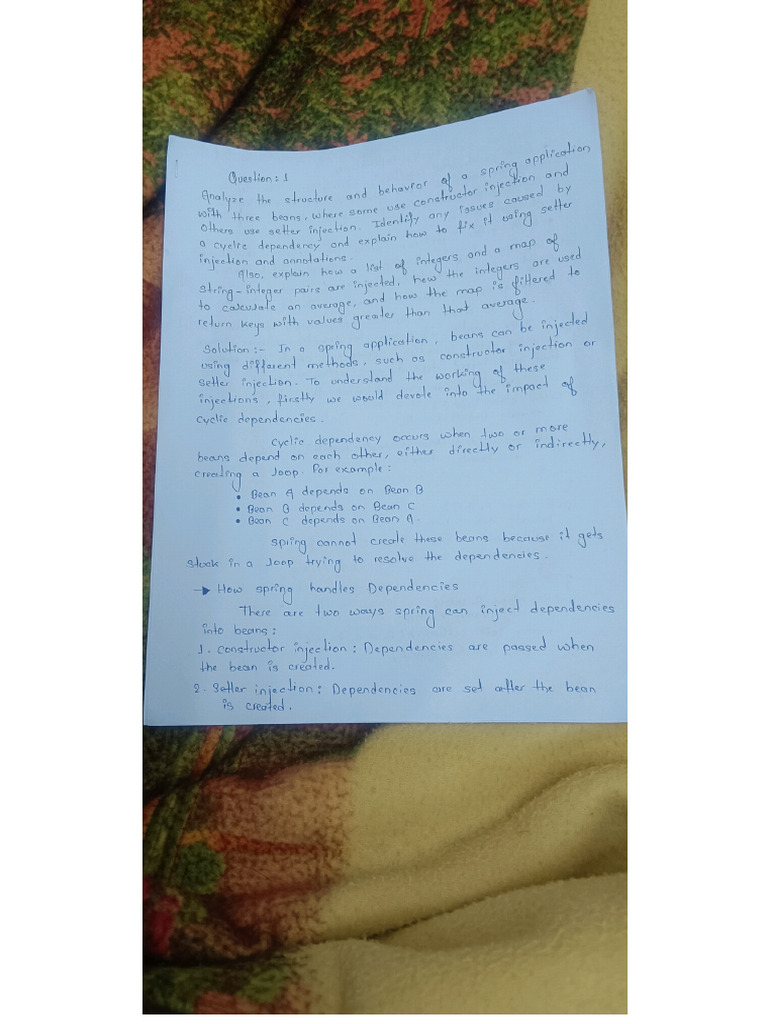 Question: 1
Analyze the structure and behavror of a spring application
with three beans, where some use constructor injection and
others use setter injection. Identify any issues caused by
a cyclic dependency and explain how to fix it using setter
injection and annotations.
Also, explain how a list of integers and a map of
string-integer pairs are injected, how the integers are used
to calculate an average, and how the map is filtered to
return keys with values greater than that average.
Solution:- In a spring application, beans can be injected
using different methods, such as constructor injection or
setter injection. To understand the working of these
injections, firstly we would devote into the impact of
cyclic dependencies.
cyclic dependency occurs when two or more
beans depend on each other, either directly or indirectly,
creating a loop. For example:
• Bean A depends on Bean B
• Bean B depends on Bean C
• Bean C depends on Bean A.
spring cannot create these beans because it gets
stuck in a loop trying to resolve the dependencies.
→ How spring handles Dependencies
There are two ways spring can inject dependencies
into beans:
1. constructor injection: Dependencies are passed when
the bean is created.
2. Setter injection: Dependencies are set after the bean
is created.